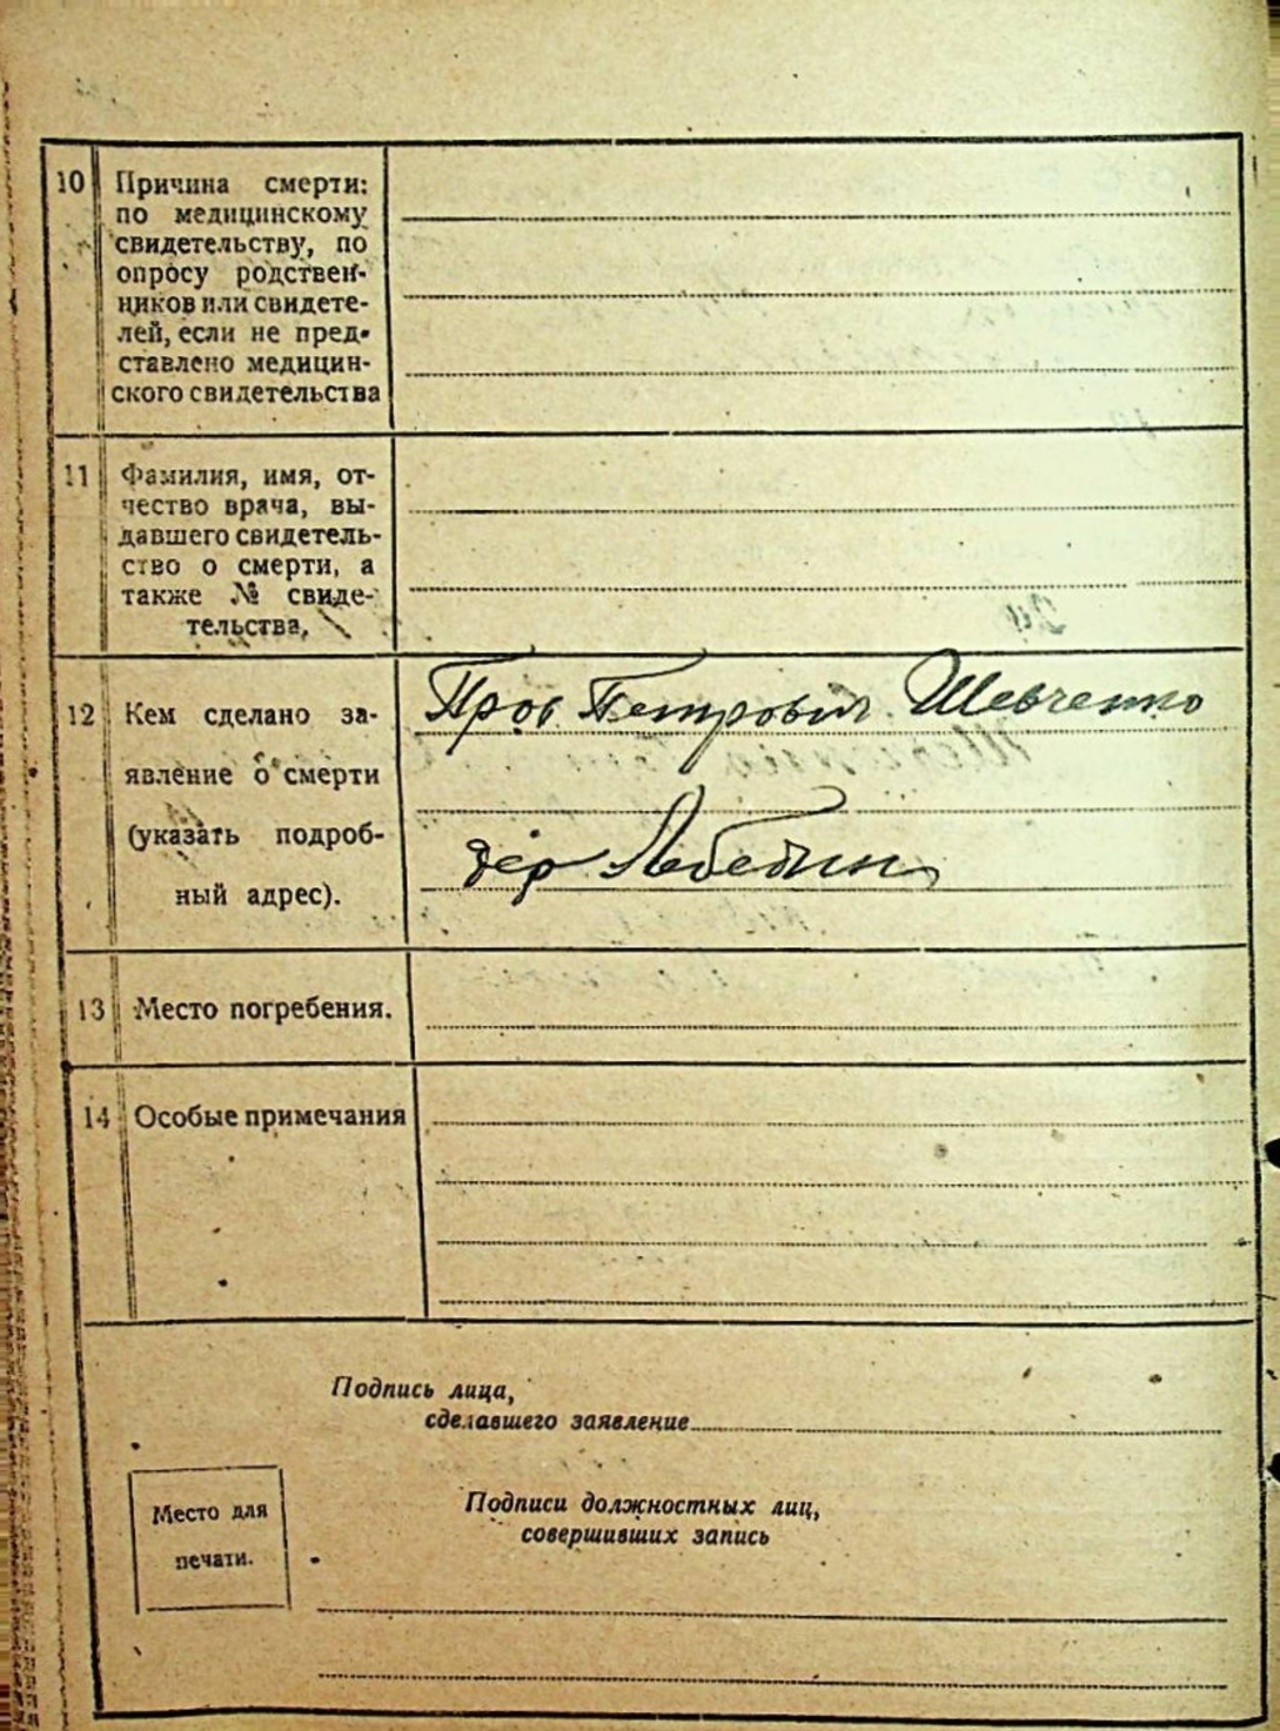 10 Причина смерти:
по медицинскому
свидетельству, по
опросу родствен-
ников или свидете-
лей, если не пред-
ставлено медицин-
ского свидетельства
11 Фамилия, имя, от-
чество врача, вы-
давшего свидетель-
ство о смерти, а
также № свиде-
тельства,
12 Кем сделано за-
явление о смерти
(указать подроб-
ный адрес).
Пров Петрович Шевченко
дер Лебедин
13 Место погребения.
14 Особые примечания
Подпись лица,
сделавшего заявление
Место для
печати.
Подписи должностных лиц,
совершивших запись